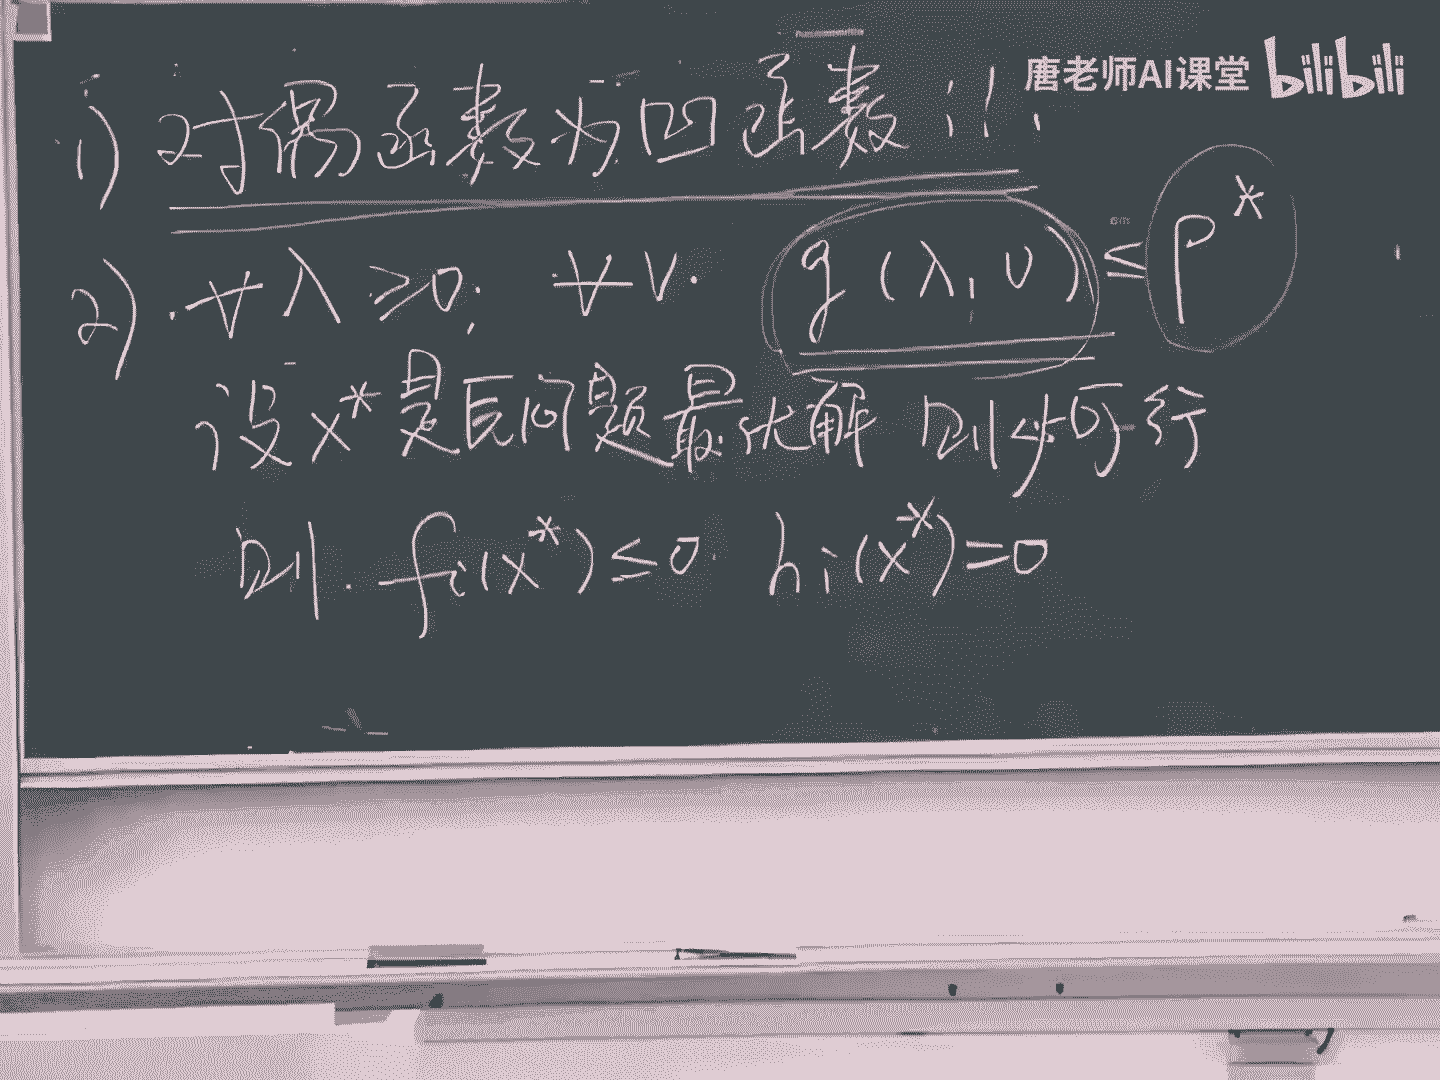 唐老师AI课堂 bilibili
1) 对偶函数为凹函数!!!
2) ∀λ≥0, ∀ν. g(λ,υ) ≤ p*
设x*是原问题最优解 则必可行
则. fi(x*)≤0 hi(x*)=0